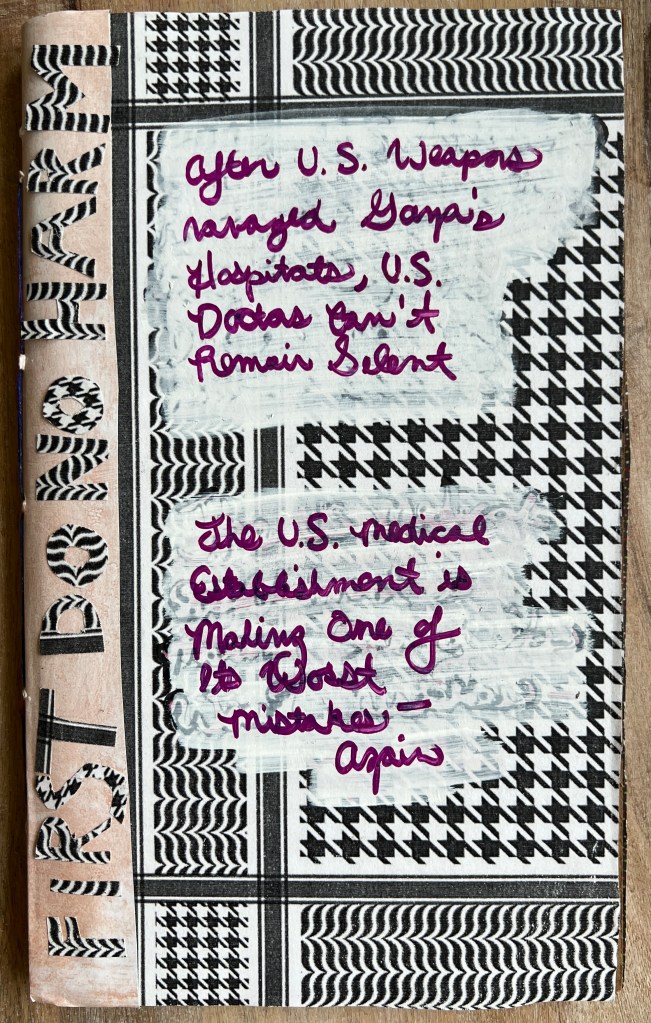 FIRST DO NO HARM
After U.S. Weapons
ravaged Gaza's
Hospitals, U.S.
Doctors Can't
Remain Silent
The U.S. medical
Establishment is
Making One of
Its Worst
mistakes—
Again